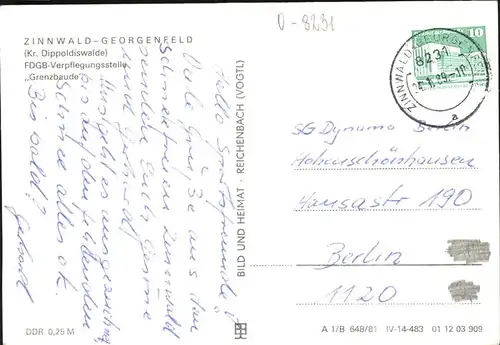 O-8231
ZINNWALD-GEORGENFELD
(Kr. Dippoldiswalde)
FDGB-Verpflegungsstelle
„Grenzbaude"
Hallo Sportsfreunde!
Viele Grüße aus dem
schneefreien Zinnwald
senden Euch
und Gerhard
Uns geht es ausgezeichnet,
bis auf den fehlenden
Schnee alles ok.
Bis bald!
Gerhard
BILD UND HEIMAT · REICHENBACH (VOGTL)
10
ZINNWALD-GEORGENFELD
8231
a
SG Dynamo Berlin
Hohenschönhausen
Hansastr 190
Berlin
1120
DDR 0,25 M
A 1/B 648/81 IV-14-483 01 12 03 909